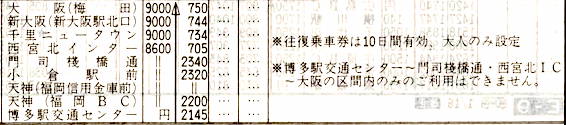 大阪(梅田) 9000 750 …
新大阪(新大阪駅北口) 9000 744 …
千里ニュータウン 9000 734 …
西宮北インター 8600 705 …
門司桟橋通 〃 2340 …
小倉駅前 〃 2320 …
天神(福岡信用金庫前) 〃 ‖ …
天神(福岡BC) 2200 …
博多駅交通センター 円 2145 …
※往復乗車券は10日間有効、大人のみ設定
※博多駅交通センター~門司桟橋通・西宮北IC
~大阪の区間内のみのご利用はできません。